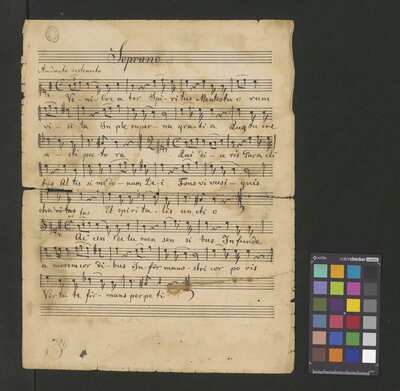 Soprano
Andante sostenuto
Ve- ni Cre a tor Spi- ri tus Mentes tu o rum
vi- si ta Im ple super- na gra ti a Quæ tu cre
a- sti pec to ra Qui di- ce ris Para cli
tus Al tis si mi do- num De- i Fons vi vus i- gnis
charitas Et spi ri ta- lis unc ti o
Ac cen de lu men sen si bus Infunde
a morem cor di- bus In fir ma no- stri cor po ris
Virtu te fir- mans per pe ti